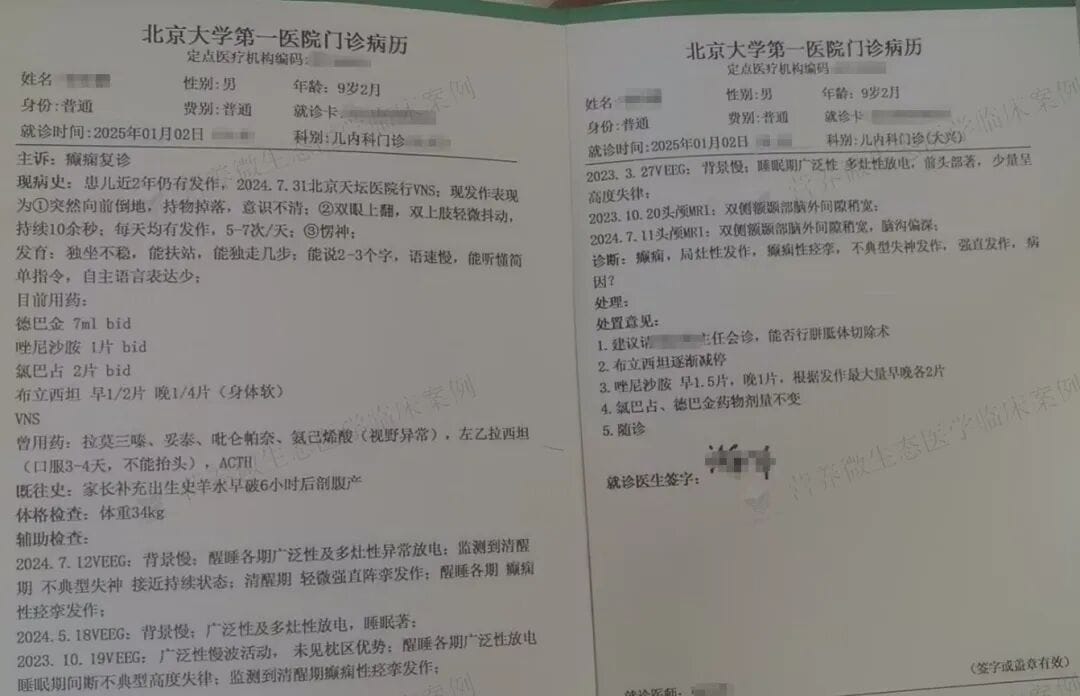 北京大学第一医院门诊病历
定点医疗机构编码:
姓名
性别:男
年龄: 9岁2月
身份:普通
费别:普通
就诊卡
就诊时间:2025年01月02日
科别:儿内科门诊
主诉: 癫痫复诊
现病史: 患儿近2年仍有发作, 2024.7.31北京天坛医院行VNS; 现发作表现
为①突然向前倒地, 持物掉落, 意识不清; ②双眼上翻, 双上肢轻微抖动,
持续10余秒; 每天均有发作, 5-7次/天; ③愣神;
发育: 独坐不稳, 能扶站, 能独走几步; 能说2-3个字, 语速慢, 能听懂简
单指令, 自主语言表达少;
目前用药:
德巴金 7ml bid
唑尼沙胺 1片 bid
氯巴占 2片 bid
布立西坦 早1/2片 晚1/4片（身体软）
VNS
曾用药: 拉莫三嗪、妥泰、吡仑帕奈、氨己烯酸（视野异常）, 左乙拉西坦
（口服3-4天, 不能抬头）, ACTH
既往史: 家长补充出生史羊水早破6小时后剖腹产
体格检查: 体重34kg
辅助检查:
2024.7.12VEEG: 背景慢; 醒睡各期广泛性及多灶性异常放电; 监测到清醒
期 不典型失神 接近持续状态; 清醒期 轻微强直阵挛发作; 醒睡各期 癫痫
性痉挛发作;
2024.5.18VEEG: 背景慢; 广泛性及多灶性放电, 睡眠著;
2023.10.19VEEG: 广泛性慢波活动, 未见枕区优势; 醒睡各期广泛性放电
睡眠期间断不典型高度失律; 监测到清醒期癫痫性痉挛发作;
北京大学第一医院门诊病历
定点医疗机构编码
姓名
性别:男
年龄: 9岁2月
身份:普通
费别:普通
就诊卡
就诊时间:2025年01月02日
科别:儿内科门诊(大兴)
2023.3.27VEEG: 背景慢; 睡眠期广泛性 多灶性放电, 前头部著, 少量呈
高度失律;
2023.10.20头颅MRI: 双侧额颞部脑外间隙稍宽;
2024.7.11头颅MRI: 双侧额颞部脑外间隙稍宽, 脑沟偏深;
诊断: 癫痫, 局灶性发作, 癫痫性痉挛, 不典型失神发作, 强直发作, 病
因?
处理:
处置意见:
1.建议请 主任会诊, 能否行胼胝体切除术
2.布立西坦逐渐减停
3.唑尼沙胺 早1.5片, 晚1片, 根据发作最大量早晚各2片
4.氯巴占、德巴金药物剂量不变
5.随诊
就诊医生签字:
(签字或盖章有效)
就诊医师:
营养微生态医学临床案例